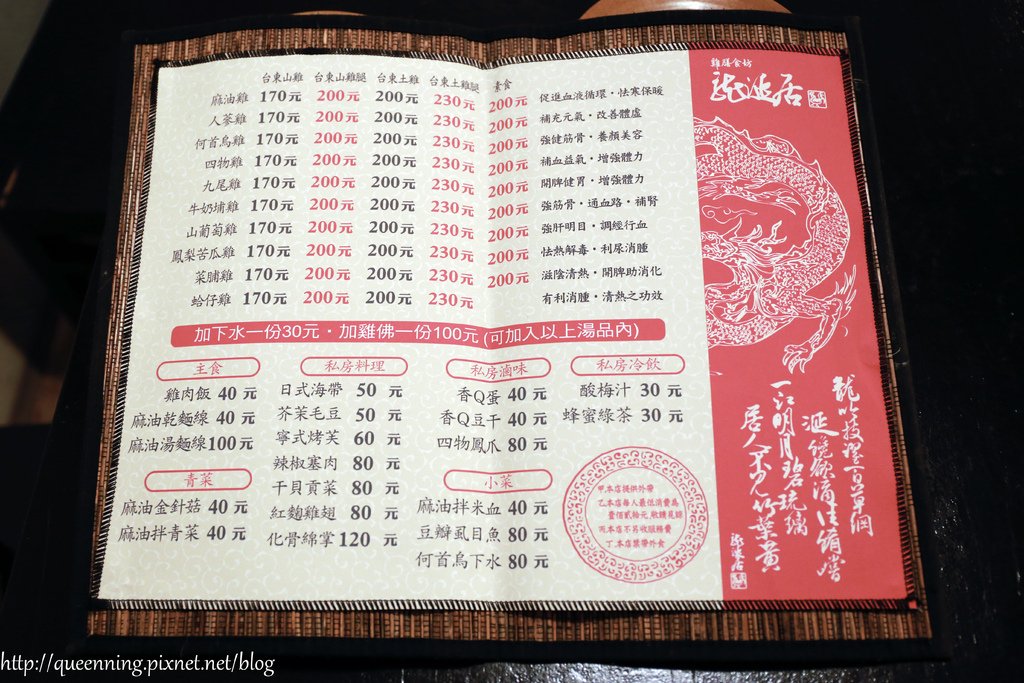 台東山雞 台東山雞腿 台東土雞 台東土雞腿 素食
麻油雞 170元 200元 200元 230元 200元 促進血液循環・怯寒保暖
人蔘雞 170元 200元 200元 230元 200元 補充元氣・改善體虛
何首烏雞 170元 200元 200元 230元 200元 強健筋骨・養顏美容
四物雞 170元 200元 200元 230元 200元 補血益氣・增強體力
九尾雞 170元 200元 200元 230元 200元 開脾健胃・增強體力
牛奶埔雞 170元 200元 200元 230元 200元 強筋骨・通血路・補腎
山葡萄雞 170元 200元 200元 230元 200元 強肝明目・調經行血
鳳梨苦瓜雞 170元 200元 200元 230元 200元 怯熱解毒・利尿消腫
菜脯雞 170元 200元 200元 230元 200元 滋陰清熱・開脾助消化
蛤仔雞 170元 200元 200元 230元 有利消腫・清熱之功效
加下水一份30元・加雞佛一份100元(可加入以上湯品內)
主食
雞肉飯 40 元
麻油乾麵線 40 元
麻油湯麵線100元
青菜
麻油金針菇 40 元
麻油拌青菜 40 元
私房料理
日式海帶 50 元
芥茉毛豆 50 元
寧式烤芙 60 元
辣椒塞肉 80 元
干貝貢菜 80 元
紅麴雞翅 80 元
化骨綿掌120 元
私房滷味
香Q蛋 40 元
香Q豆干 40 元
四物鳳爪 80 元
小菜
麻油拌米血 40 元
豆瓣虱目魚 80 元
何首烏下水 80 元
私房冷飲
酸梅汁 30 元
蜂蜜綠茶 30 元
甲.本店提供外帶
乙.本店每人最低消費為
壹佰貳拾元,敬請見諒
丙.本店不另收服務費
丁.本店禁帶外食
雞膳食坊
龍涎居
龍吟技擢百草綱
涎饞欲滴佳餚嚐
一江明月碧琉璃
居人不見竹葉黃
龍涎居
http://queenning.pixnet.net/blog